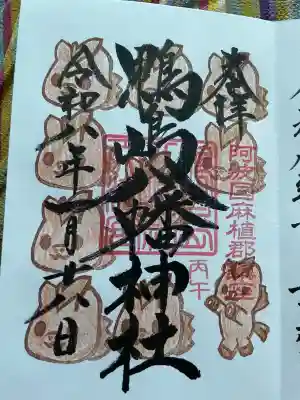 奉拝
阿波国麻植郡
鴨島八幡神社
丙午
令和八年一月廿六日